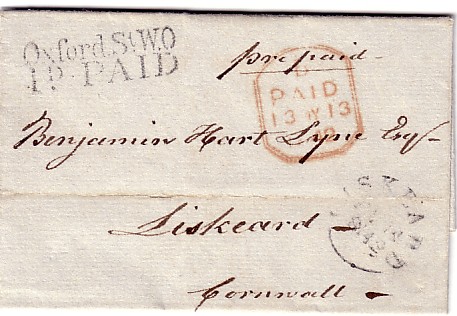 Oxford St W.O
1D PAID
pre paid
PAID
13 13
Benjamin Hart Lyne Esq
Liskeard
Cornwall